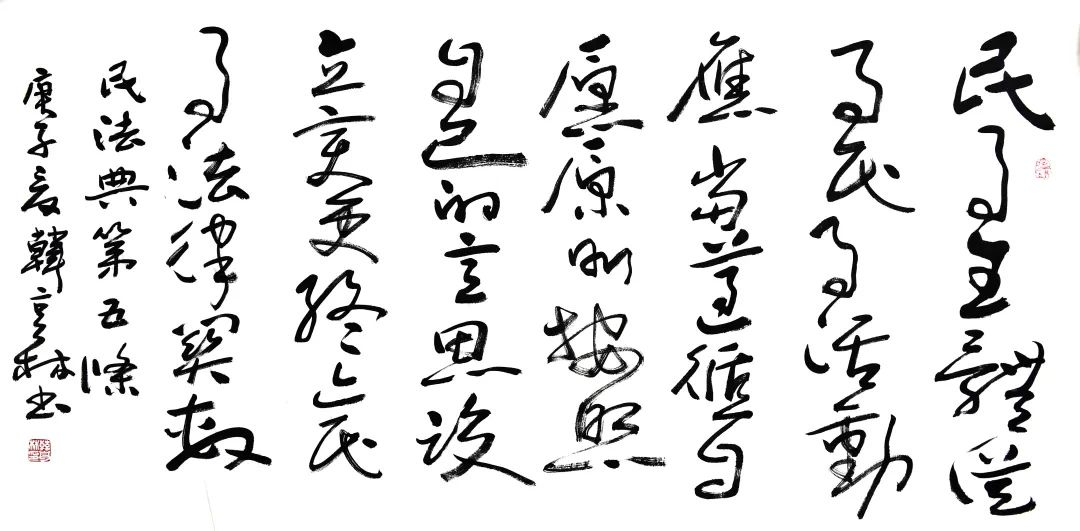 民事主體從
事民事活動
應當遵循自
愿原則按照
自己的意思設
立变更終止民
事法律関
民法典第五條
庚子夏韓林书